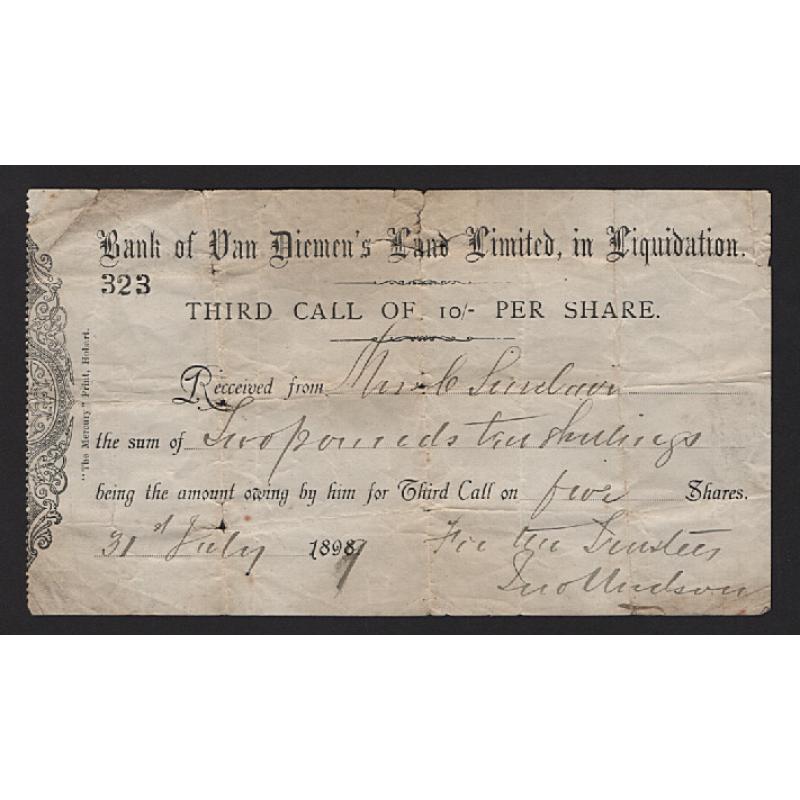 Bank of Van Diemen's Land Limited, in Liquidation.
323
THIRD CALL OF 10/- PER SHARE.
"The Mercury" Print, Hobart.
Received from
the sum of Two pounds ten shillings
being the amount owing by him for Third Call on five Shares.
31st July 1898 9 For the Trustees
Jno Hudson